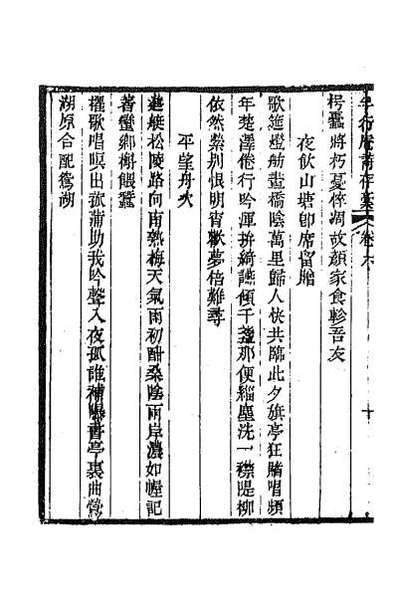 行庵詩存藁 卷六
枵蠹將朽憂倅凋故顏家食軫吾友
夜飲山塘卽席留贈
歌筵燈舫畫橋陰萬里歸人快共臨此夕旗亭狂賭唱頻
年楚澤倦行吟渾拚綺讌傾千盞那便緇塵洗一襟隄柳
依然縈別恨明宵歡夢倍難尋
平望舟次
艇松陵路向南熱梅天氣雨初酣桑陰兩岸濃如幄記
著蠻鄉槲餵蠶
櫂歌唱暝出菰蒲助我吟聲入夜孤誰補陽書亭裏曲鶯
湖原合配鴛湖